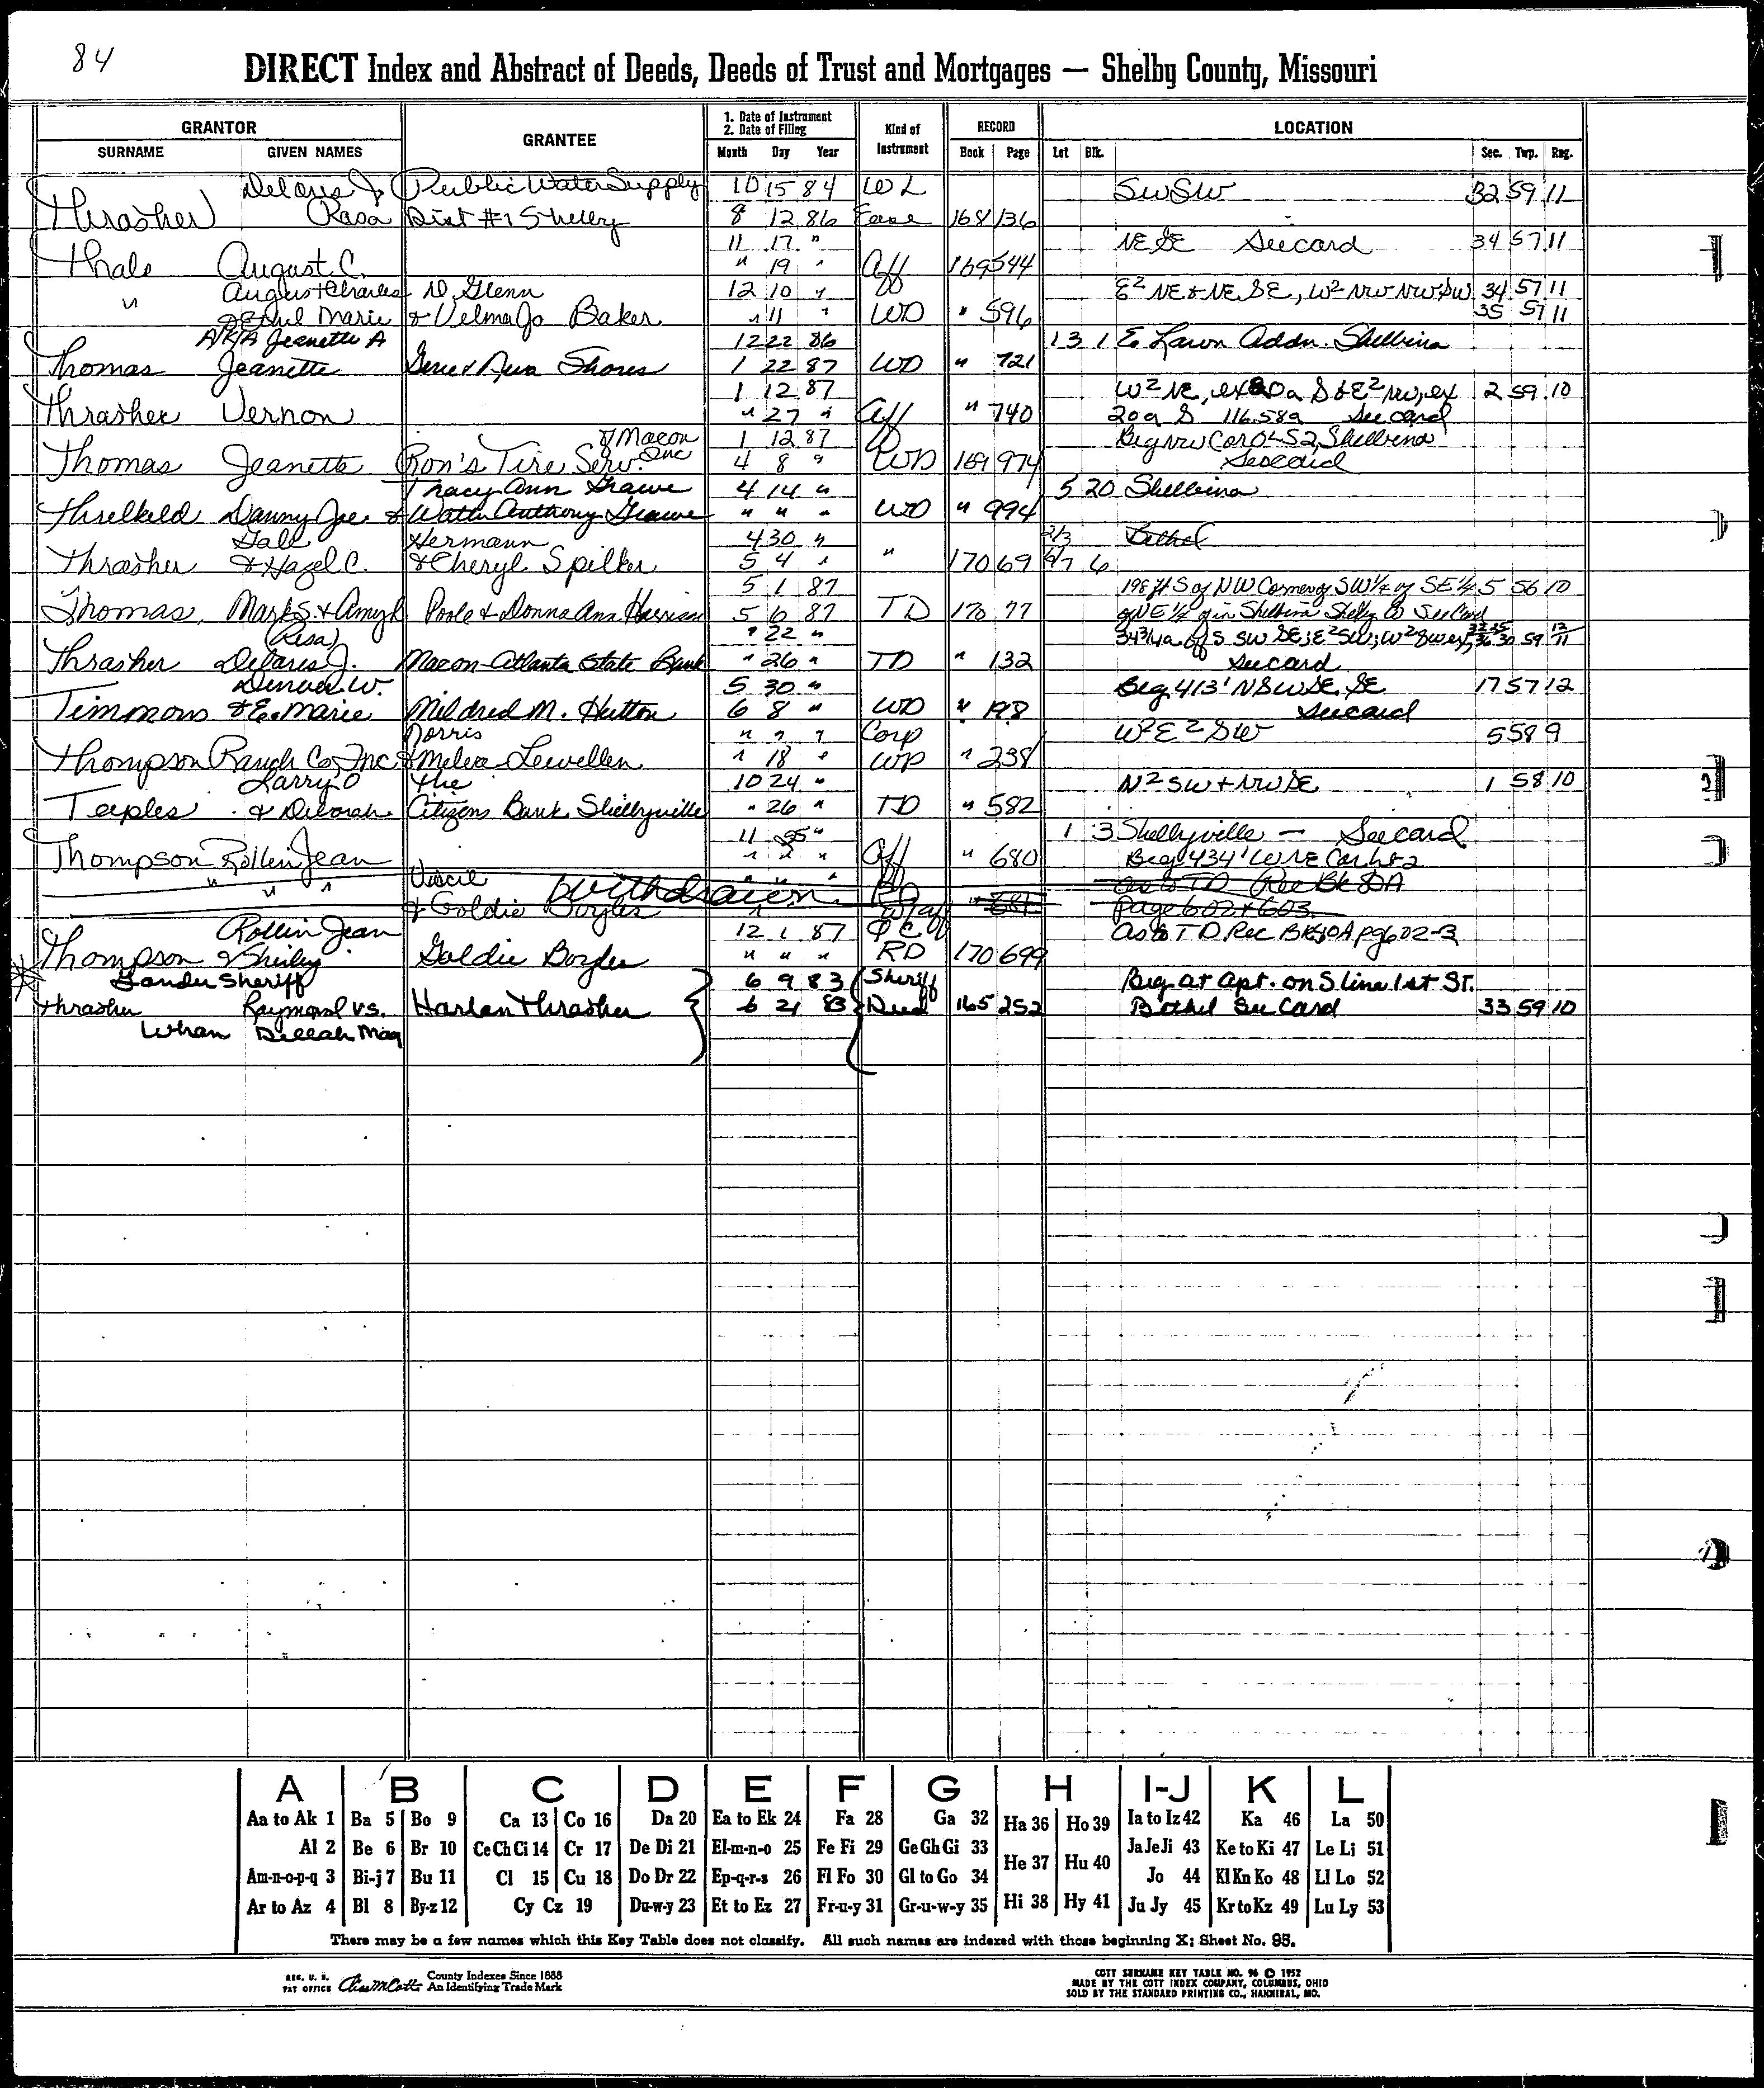 84
DIRECT Index and Abstract of Deeds, Deeds of Trust and Mortgages — Shelby County, Missouri
GRANTOR GRANTEE 1. Date of Instrument 2. Date of Filing Kind of Instrument RECORD LOCATION
SURNAME GIVEN NAMES Month Day Year Book Page Lot Blk. Sec. Twp. Rng.
Delores J Public Water Supply 10 15 84 WL SWSW 32 59 11
Thrasher Rasa Dist #1 Shelby 8 12 86 Ease 168 136
11 17 " NE SE See card 34 57 11
Thale August C. " 19 " Aff 169 544
August & Charles D. Glenn 12 10 " E2 NE & NE SE, W2 NW NW SW 34 57 11
" & Ethel Marie & Velma Jo Baker " 11 " WD " 596 35 57 11
A/K/A Jeanette A 12 22 86 13 1 E Lawn Addn. Shelbina
Thomas Jeanette Gene & Ava Shores 1 22 87 WD " 721
1 12 87 W2 NE, ex 20a S & E2 NW, ex 2 59 10
Thrasher Vernon " 27 " Aff " 740 20a S 116.58a See card
of Macon 1 12 87 Beg NW Cor OL 52, Shelbina
Thomas Jeanette Ron's Tire Serv. Inc 4 8 " WD 169 974 See card
Tracy Ann Grawe 4 14 " 5 20 Shelbina
Threlkeld Danny Joe & Walter Anthony Grawe " " " WD " 994
Gall Hermann 4 30 " 2/3 Bethel
Thrasher & Hazel C. & Cheryl Spilker 5 4 " " 170 69 6/7 6
5 1 87 198 ft S of NW Corner of SW 1/4 of SE 1/4 5 56 10
Thomas, Mark S. & Amy L Poole & Donna Ann Harrison 5 6 87 TD 170 77 of NE 1/4 of in Shelbina Shelby Co See Card
(Rasa) " 22 " SW SE; E2 SW; W2 59
Thrasher Delores J. Macon-Atlanta State Bank " 26 " TD " 132 See card
Denver W. 5 30 " Beg 413' N SW SE SE 17 57 12
Timmons & E. Marie Mildred M. Hutton 6 8 " WD " 198 See card
Norris " " " Corp W2 E2 SW 5 58 9
Thompson Ranch Co, Inc & Melva Lewellen " 18 " WD " 238
Larry O The 10 24 " N2 SW + NW SE 1 58 10
Teaples & Deborah Citizens Bank Shelbyville " 26 " TD " 582
11 25 " 1 3 Shelbyville — See card
Thompson Rollen Jean " " " Aff " 680 Beg 434' W NE Cor Lot 2
" " " Virgil Withdrawn " " " RD as to TD Rec Bk 80A
& Goldie Boyles " 681 page 602 & 603
Rollin Jean 12 1 87 as to TD Rec BK 80A pg 602-3
Thompson & Shirley Goldie Boyles " " " RD 170 699
Lander Sheriff 6 9 83 Sheriff Beg at a pt. on S line 1st St.
Thrasher Raymond vs. Harlan Thrasher 6 21 83 Deed 165 252 Bethel See Card 33 59 10
Whan Delcah May
A B C D E F G H I-J K L
Aa to Ak 1 Ba 5 Bo 9 Ca 13 Co 16 Da 20 Ea to Ek 24 Fa 28 Ga 32 Ha 36 Ho 39 Ia to Iz 42 Ka 46 La 50
Al 2 Be 6 Br 10 Ce Ch Ci 14 Cr 17 De Di 21 El-m-n-o 25 Fe Fi 29 Ge Gh Gi 33 He 37 Hu 40 Ja Je Ji 43 Ke to Ki 47 Le Li 51
Am-n-o-p-q 3 Bi-j 7 Bu 11 Cl 15 Cu 18 Do Dr 22 Ep-q-r-s 26 Fl Fo 30 Gl to Go 34 Jo 44 Kl Kn Ko 48 Ll Lo 52
Ar to Az 4 Bl 8 By-z 12 Cy Cz 19 Du-w-y 23 Et to Ez 27 Fr-u-y 31 Gr-u-w-y 35 Hi 38 Hy 41 Ju Jy 45 Kr to Kz 49 Lu Ly 53
There may be a few names which this Key Table does not classify. All such names are indexed with those beginning X; Sheet No. 95.
REG. U. S. PAT OFFICE County Indexes Since 1888 An Identifying Trade Mark
COTT SURNAME KEY TABLE NO. 96 © 1952
MADE BY THE COTT INDEX COMPANY, COLUMBUS, OHIO
SOLD BY THE STANDARD PRINTING CO., HANNIBAL, MO.